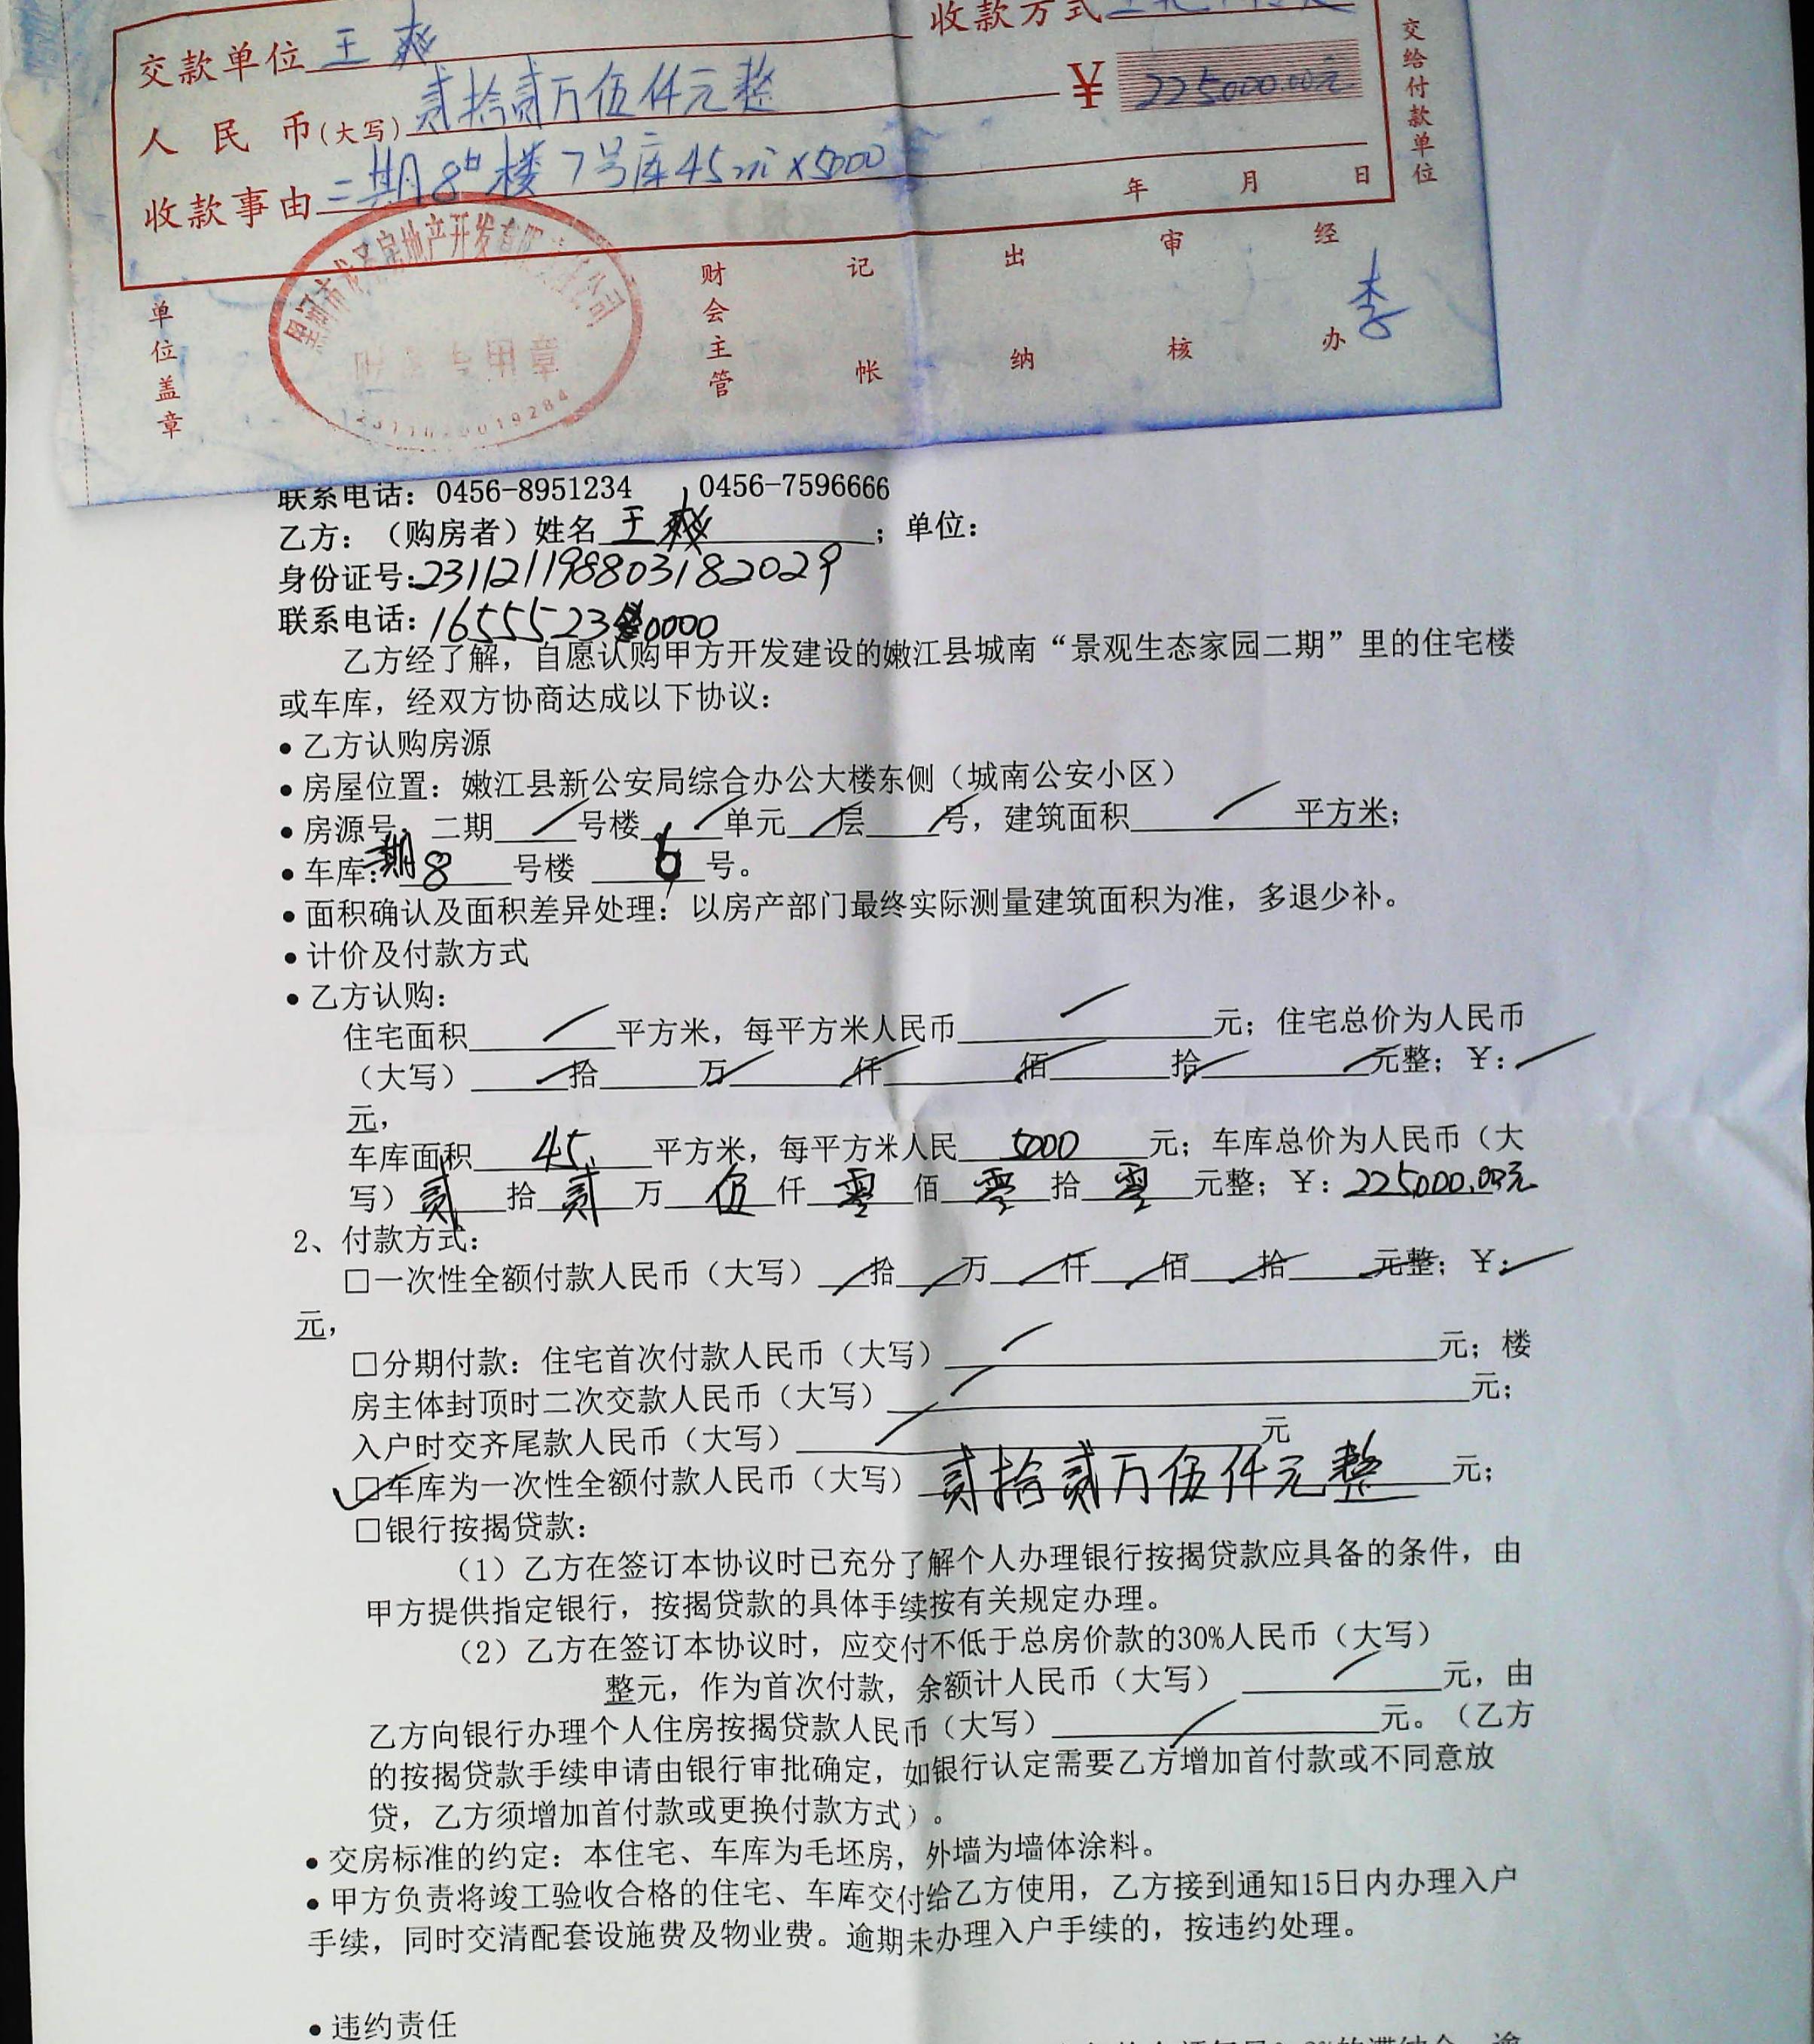 收款方式
交款单位 王爽
人民币(大写) 贰拾贰万伍仟元整 ¥ 225000.00元
收款事由 二期8#楼7号库45㎡×5000
年 月 日
交给付款单位
单位盖章
财会主管 记帐 出纳 审核 经办 李
房地产开发有限 公司
专用章
联系电话：0456-8951234 0456-7596666
乙方：（购房者）姓名 王爽 ；单位：
身份证号:231121198803182029
联系电话：16555230000
乙方经了解，自愿认购甲方开发建设的嫩江县城南“景观生态家园二期”里的住宅楼
或车库，经双方协商达成以下协议：
• 乙方认购房源
• 房屋位置：嫩江县新公安局综合办公大楼东侧（城南公安小区）
• 房源号：二期 / 号楼 / 单元 / 层 / 号，建筑面积 / 平方米；
• 车库：期8 号楼 6 号。
• 面积确认及面积差异处理：以房产部门最终实际测量建筑面积为准，多退少补。
• 计价及付款方式
• 乙方认购：
住宅面积 / 平方米，每平方米人民币 / 元；住宅总价为人民币
（大写） / 拾 / 万 / 仟 / 佰 / 拾 / 元整；¥： /
元，
车库面积 45 平方米，每平方米人民 5000 元；车库总价为人民币（大
写）贰 拾 贰 万 伍 仟 零 佰 零 拾 零 元整；¥：225000.00元
2、付款方式：
□一次性全额付款人民币（大写） / 拾 / 万 / 仟 / 佰 / 拾 / 元整；¥： /
元，
□分期付款：住宅首次付款人民币（大写） / 元；楼
房主体封顶时二次交款人民币（大写） / 元；
入户时交齐尾款人民币（大写） / 元
☑车库为一次性全额付款人民币（大写） 贰拾贰万伍仟元整 元；
□银行按揭贷款：
（1）乙方在签订本协议时已充分了解个人办理银行按揭贷款应具备的条件，由
甲方提供指定银行，按揭贷款的具体手续按有关规定办理。
（2）乙方在签订本协议时，应交付不低于总房价款的30%人民币（大写）
整元，作为首次付款，余额计人民币（大写） / 元，由
乙方向银行办理个人住房按揭贷款人民币（大写） / 元。（乙方
的按揭贷款手续申请由银行审批确定，如银行认定需要乙方增加首付款或不同意放
贷，乙方须增加首付款或更换付款方式）。
• 交房标准的约定：本住宅、车库为毛坯房，外墙为墙体涂料。
• 甲方负责将竣工验收合格的住宅、车库交付给乙方使用，乙方接到通知15日内办理入户
手续，同时交清配套设施费及物业费。逾期未办理入户手续的，按违约处理。
• 违约责任